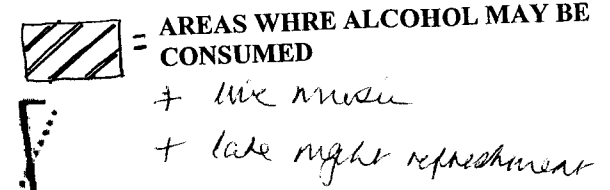 = AREAS WHRE ALCOHOL MAY BE
CONSUMED
+ live music
+ late night refreshment